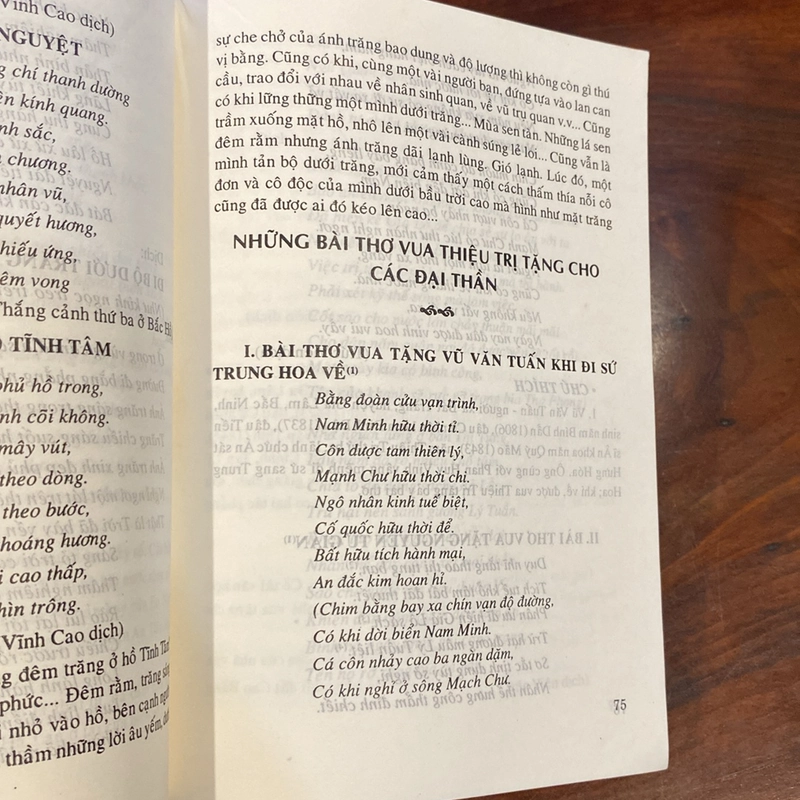 Vĩnh Cao dịch)
NGUYỆT
chí thanh dường
kính quang.
sắc,
chương.
nhân vũ,
quyết hương,
hiếu ứng,
vong
Thắng cảnh thứ ba ở Bắc
TĨNH TÂM
phủ hồ trong,
cõi không.
mây vút,
theo dòng.
theo bước,
hoáng hương.
cao thấp,
trông.
Vĩnh Cao dịch)
đêm trăng ở hồ Tĩnh
phức... Đêm rằm, trăng
nhỏ vào hồ, bên cạnh
thầm những lời âu yếm,
sự che chở của ánh trăng bao dung và độ lượng thì không còn gì thú
vị bằng. Cũng có khi, cùng một vài người bạn, đứng tựa vào lan can
cầu, trao đổi với nhau về nhân sinh quan, về vũ trụ quan v.v... Cũng
có khi lững thững một mình dưới trăng... Mùa sen tàn. Những lá sen
trầm xuống mặt hồ, nhô lên một vài cành súng lẻ loi... Cũng vẫn là
đêm rằm nhưng ánh trăng dãi lạnh lùng. Gió lạnh. Lúc đó, một
mình tản bộ dưới trăng, mới cảm thấy một cách thấm thía nỗi cô
đơn và cô độc của mình dưới bầu trời cao mà hình như mặt trăng
cũng đã được ai đó kéo lên cao...
NHỮNG BÀI THƠ VUA THIỆU TRỊ TẶNG CHO
CÁC ĐẠI THẦN
I. BÀI THƠ VUA TẶNG VŨ VĂN TUẤN KHI ĐI SỨ
TRUNG HOA VỀ(1)
Bằng đoàn cửu vạn trình,
Nam Minh hữu thời tỉ.
Côn dược tam thiên lý,
Mạnh Chư hữu thời chỉ.
Ngô nhân kinh tuế biệt,
Cố quốc hữu thời để.
Bất hữu tích hành mại,
An đắc kim hoan hỉ.
(Chim bằng bay xa chín vạn độ đường,
Có khi dời biển Nam Minh.
Cá côn nhảy cao ba ngàn dặm,
Có khi nghỉ ở sông Mạch Chư.
75